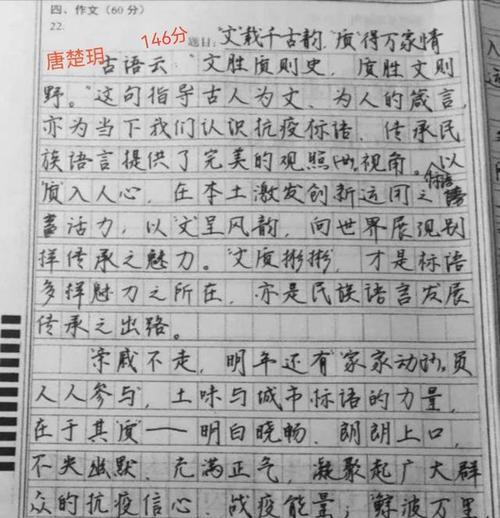 四、作文(60分)
22.
146分
题目："文"载千古韵 "质"得万家情
唐楚玥
古语云："文胜质则史，质胜文则
野。"这句指导古人为文、为人的箴言，
亦为当下我们认识抗疫标语、传承民
族语言提供了完美的观照 视角。以
"质"入人心，在本土激发创新运用之标语
活力，以"文"呈风韵，向世界展现别
样传承之魅力。"文质彬彬"，才是标语
多样魅力之所在，亦是民族语言发展
传承之出路。
"亲戚不走，明年还有""家家动员
人人参与"，土味与城市标语的力量，
在于其"质"——明白晓畅、朗朗上口，
不失幽默、充满正气，凝聚起广大群
众的抗疫信心、战疫能量；"鲸波万里